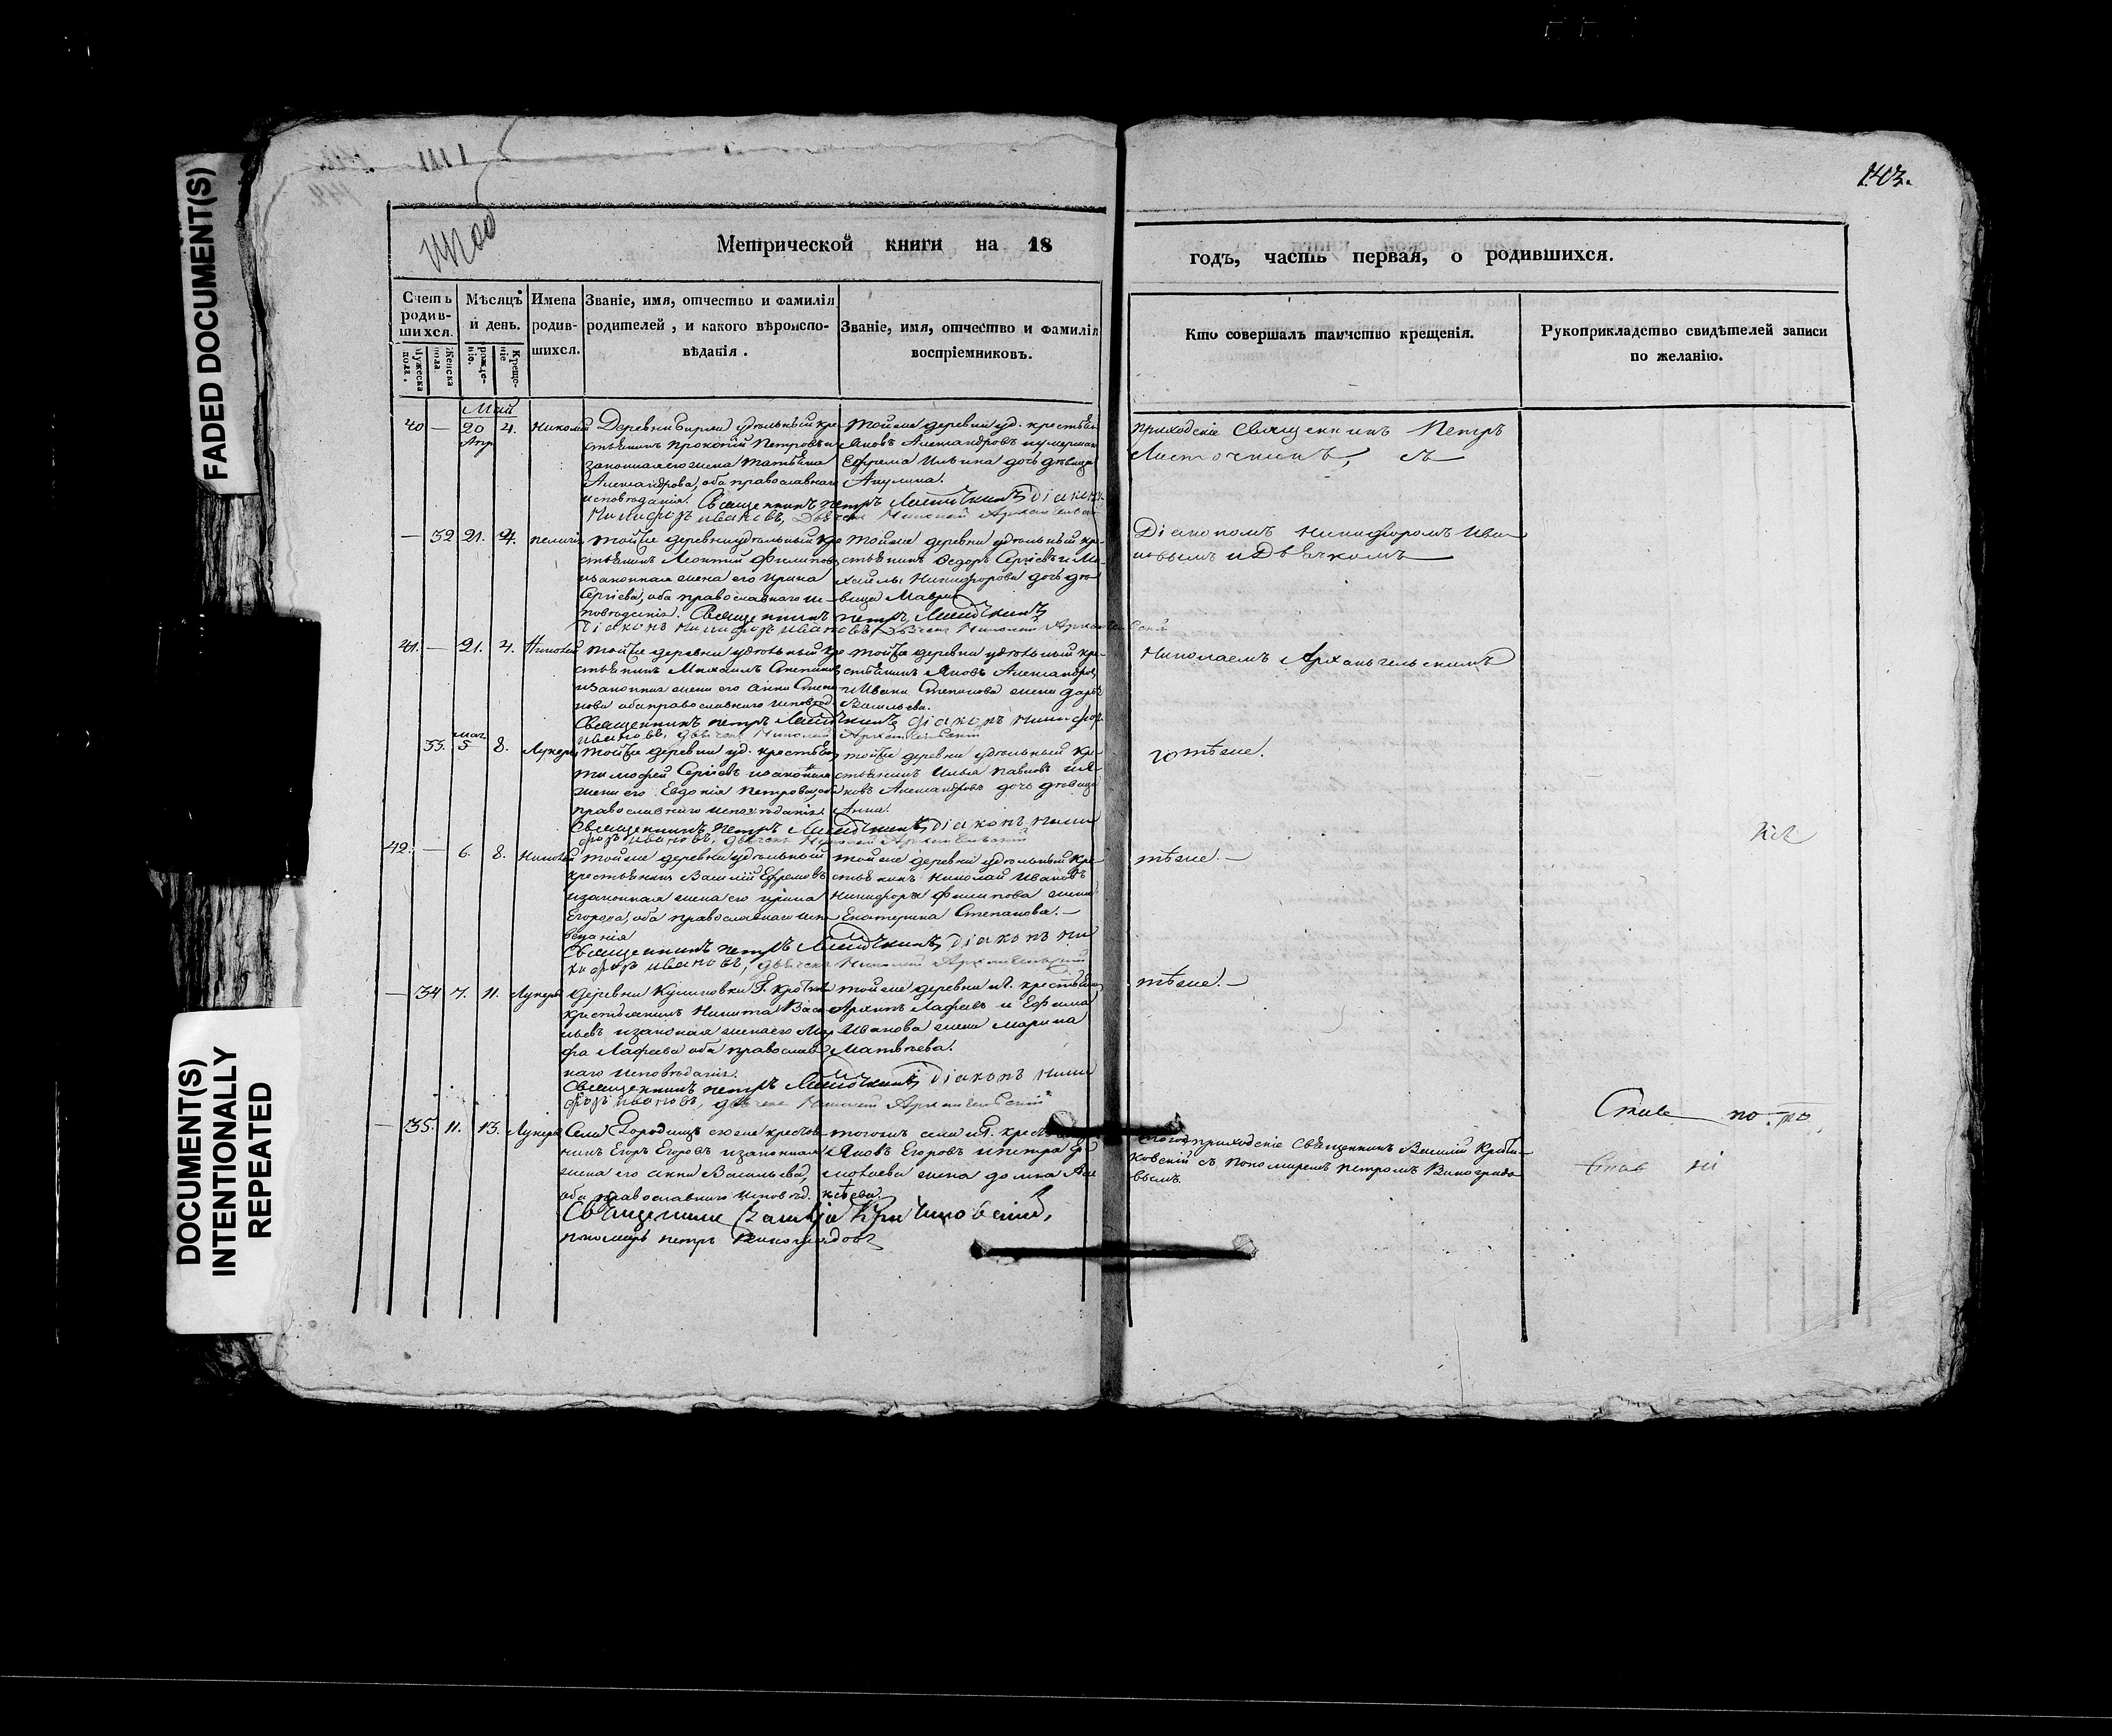 FADED DOCUMENT(S)
DOCUMENT(S)
INTENTIONALLY
REPEATED
143.
Метрической книги на 18
годъ, часть первая, о родившихся.
Счетъ родившихся.
Мужеска пола.
Женска пола.
Мѣсяцъ и день.
рожденіе.
Крещеніе
Имена родившихся.
Званіе, имя, отчество и фамилія
родителей, и какого вѣроиспо-
вѣданія.
Званіе, имя, отчество и фамилія
воспріемниковъ.
Кто совершалъ таинство крещенія.
Рукоприкладство свидѣтелей записи
по желанію.
Май
40 — 20 Апр 4. Николай
Деревни удѣльный кре-
стьянинъ Прокопій Петровъ и
законная его жена Татьяна
Александрова, оба православнаго
исповѣданія. Священникъ Петръ Ласточкинъ діаконъ
Никифоръ Ивановъ, Дьячекъ Николай Архангельскій
Тойже деревни уд. крестьян
Яковъ Александровъ и умершаго
Ефрема Ильина дочь дѣвица
Акулина.
Приходскіе Священникъ Петръ
Ласточкинъ, съ
— 32 21. 4. Пелагія
Тойже деревни удѣльный кре
стьянинъ Леонтій Филиповъ
и законная жена его Ирина
Сергіева, оба православнаго ис-
повѣданія. Священникъ Петръ Ласточкинъ
Діаконъ Никифоръ Ивановъ, Дьячекъ Николай Архангельскій
Тойже деревни удѣльный кре-
стьянинъ Федоръ Сергіевъ и Ми-
хайлы Никифорова дочь дѣ
вица Мавра
Діакономъ Никифоромъ Ива
новымъ и Дьячкомъ
41. — 21. 4. Николай
Тойже деревни удѣльный кре
стьянинъ Михаилъ Степановъ
и законная жена его Анна Степа
нова оба православнаго исповѣд.
Священникъ Петръ Ласточкинъ діаконъ Никифоръ
Ивановъ, дьячекъ Николай Архангельскій
Тойже деревни удѣльный кре-
стьянинъ Яковъ Александровъ
и Ивана Степанова жена Дарья
Васильева.
Николаемъ Архангельскимъ
33. 5 8. Лукерья
Тойже деревни уд. крестьян
Тимофей Сергіевъ и законная
жена его Евдокія Петрова, оба
православнаго исповѣданія.
Священникъ Петръ Ласточкинъ діаконъ Ники
форъ Ивановъ, дьячекъ Николай Архангельскій
тойже деревни удѣльный кре
стьянинъ Илья Павловъ и Я
ковъ Александровъ дочь дѣвица
Анна.
тѣже.
42. — 6. 8. Николай
Тойже деревни удѣльный
крестьянинъ Василій Ефремовъ
и законная жена его Ирина
Егорова, оба православнаго испо
веданія
Священникъ Петръ Ласточкинъ діаконъ Ни
кифоръ Ивановъ, дьячекъ Николай Архангельскій
Тойже деревни удѣльный кре
стьянинъ Николай Ивановъ
Никифора Филипова жена
Екатерина Степанова. —
тѣже. —
— 34 7. 11. Лукерья
Деревни
крестьянинъ Никита Васи
льевъ и законая жена его Мар
фа Лафеева оба православ
наго исповѣданія.
Священникъ Петръ Ласточкинъ діаконъ Ники
форъ Ивановъ, дьячекъ Николай Архангельскій
тойже деревни крестьянинъ
Архипъ Лафеевъ и Ефима
Иванова жена Марина
Матвѣева.
тѣже. —
— 35. 11. 13. Лукерья
Села Городищъ крестья
нинъ Егоръ Егоровъ и законная
жена его Анна Васильева,
оба православнаго исповѣд.
Яковъ Егоровъ и Петра
жена Домна
Священникъ
пономарь Петръ Виноградовъ
приходскіе Священникъ Василій
съ пономаремъ Петромъ Виноградо
вымъ.